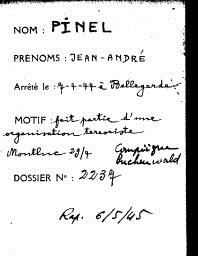 NOM : PINEL
PRÉNOMS : JEAN-ANDRÉ
Arrêté le : 7-4-44 à Bellegarde
MOTIF : fait partie d'une
organisation terroriste
Montluc 29/4 Compiègne
Buchenwald
DOSSIER N° : 2237
Rap. 6/5/45